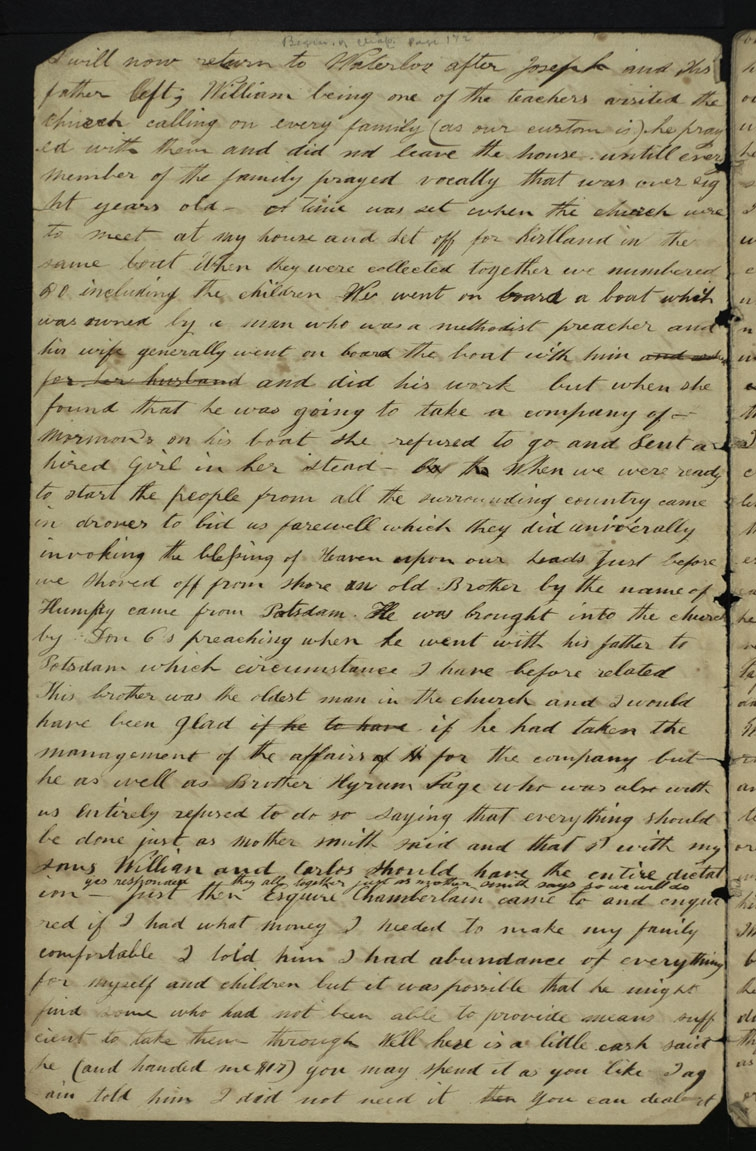 Begin of chap. page 172
I will now return to Waterloo after Joseph and His
father left; William being one of the teachers visited the
church calling on every family (as our custom is) he pray
ed with them and did not leave the house untill every
member of the family prayed vocally that was over eig
ht years old— a time was set when the church were
to meet at my house and set off for Kirtland in the
same boat When they were collected together we numbered
80 including the children We went on board a boat which
was owned by a man who was a methodist preacher and
his wife generally went on board the boat with him and
for her husband and did his work but when she
found that he was going to take a company of—
Mormons on his boat she refused to go and sent a
hired Girl in her stead— When we were ready
to start the people from all the surrounding country came
in droves to bid us farewell which they did universally
invoking the blessing of Heaven upon our heads Just before
we shoved off from shore an old Brother by the name of
Humpfry came from Potsdam. He was brought into the church
by Don C s preaching when he went with his father to
Potsdam which circumstance I have before related
This brother was the oldest man in the church and I would
have been glad if he to have if he had taken the
management of the affairs of for the company but
he as well as Brother Hyrum Page who was also with
us Entirely refused to do so saying that everything should
be done just as Mother smith said and that I with my
sons William and Carlos should have the entire dictat
yes responded they all together just as mother smith says so we will do
ion— Just then Esquire Chamberlain came to and enqui
red if I had what money I needed to make my family
comfortable I told him I had abundance of everything
for myself and children but it was possible that he might
find some who had not been able to provide means suff
cient to take them through Well here is a little cash said
he (and handed me $17) you may spend it as you like I ag
ain told him I did not need it then you can deal it